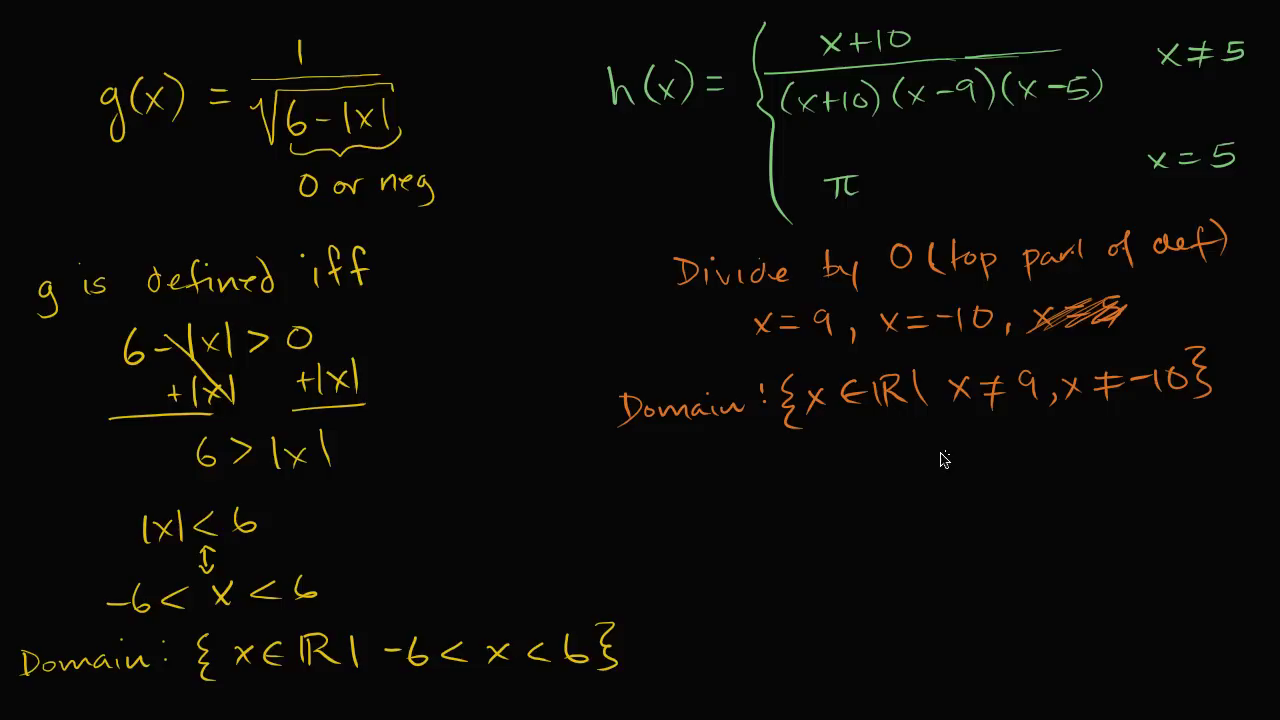 g(x) = 1 / √(6 - |x|)
0 or neg
g is defined iff
6 - |x| > 0
+|x| +|x|
6 > |x|
|x| < 6
↕
-6 < x < 6
Domain: { x ∈ ℝ | -6 < x < 6 }
h(x) = { (x+10) / ((x+10)(x-9)(x-5)) x ≠ 5
π x = 5
Divide by 0 (top part of def)
x = 9, x = -10,
Domain: { x ∈ ℝ | x ≠ 9, x ≠ -10 }